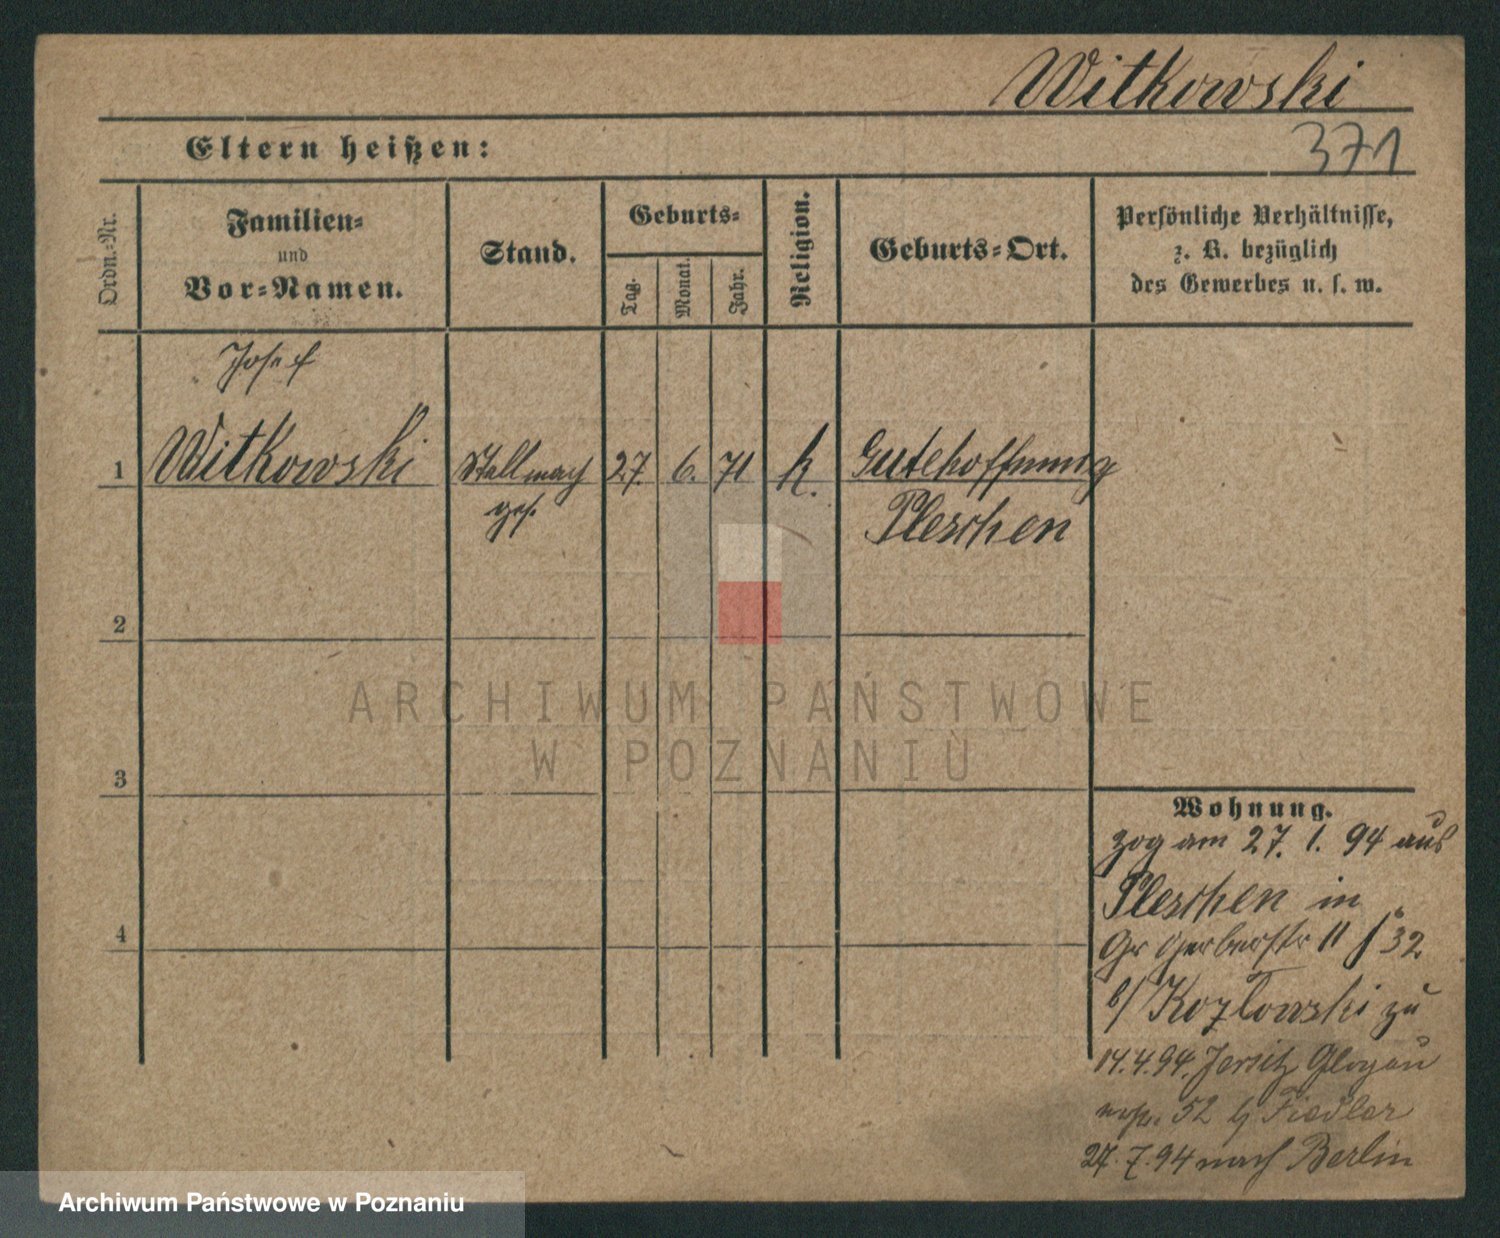 Witkowski
371
Eltern heißen:
Ordn.-Nr.
Familien-
und
Vor-Namen.
Stand.
Geburts-
Tag.
Monat.
Jahr.
Religion.
Geburts-Ort.
Persönliche Verhältnisse,
z. B. bezüglich
des Gewerbes u. s. w.
Josef
1 Witkowski Stellmach 27. 6. 71 k. Gutehoffnung
ges. Pleschen
2
3
4
ARCHIWUM PAŃSTWOWE
W POZNANIU
Wohnung.
zog am 27. 1. 94 aus
Pleschen in
Gr Gerberstr 11 32
b/ Kozlowski zu
14.4.94. Jersitz Glogau
52 b/ Fiedler
24. 7. 94 nach Berlin
Archiwum Państwowe w Poznaniu